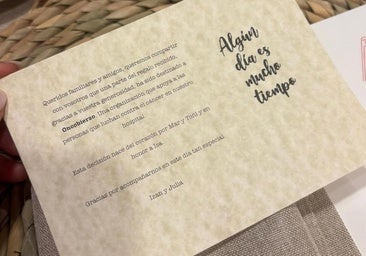 Queridos familiares y amigos, queremos compartir
con vosotros que una parte del regalo recibido,
gracias a vuestra generosidad, ha sido destinado a
Oncobierzo. Una organización que apoya a las
personas que luchan contra el cáncer en nuestro
hospital.
Esta decisión nace del corazón por Mar y Toñi y en
honor a Isa.
Gracias por acompañarnos en este día tan especial
Izan y Julia
Algún
día es
mucho
tiempo